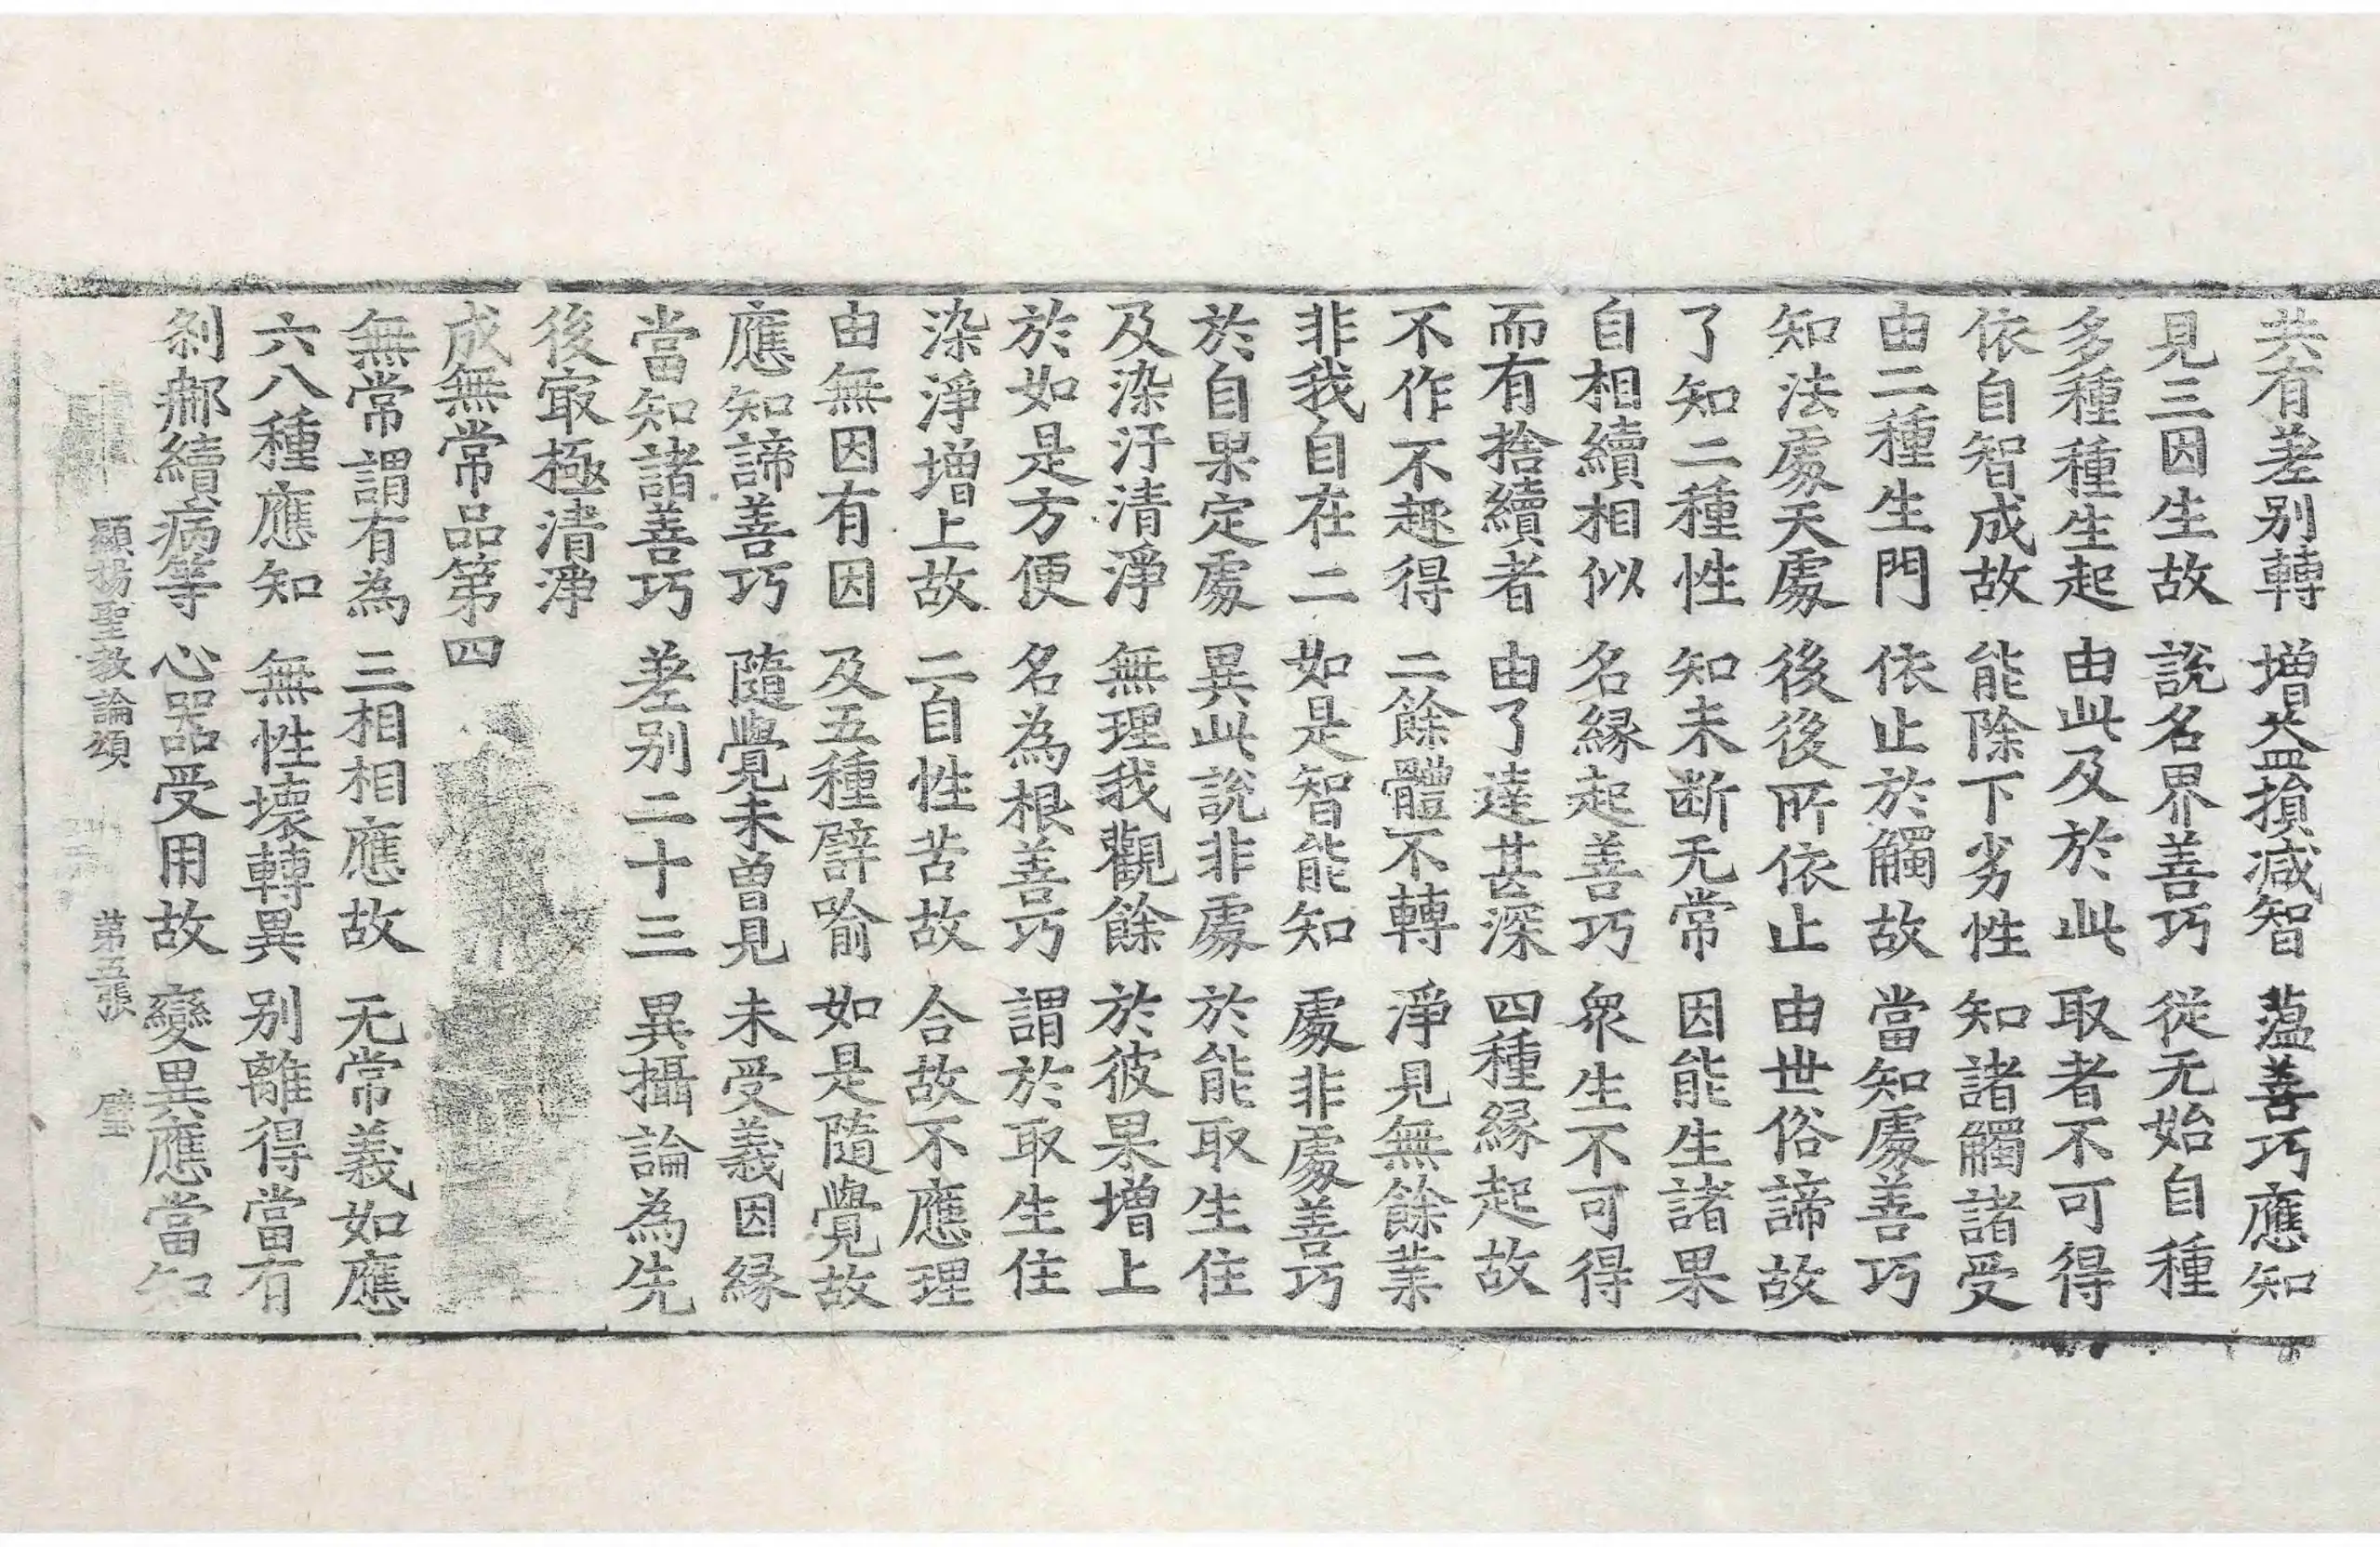 共有差别轉 增益損減智 薀善巧應知
見三因生故 說名界善巧 從无始自種
多種種生起 由此及於此 取者不可得
依自智成故 能除下劣性 知諸觸諸受
由二種生門 依止於觸故 當知處善巧
知法處天處 後後所依止 由世俗諦故
了知二種性 知未断无常 因能生諸果
自相續相似 名緣起善巧 衆生不可得
而有捨續者 由了達甚深 四種緣起故
不作不趣得 二餘體不轉 淨見無餘業
非我自在二 如是智能知 處非處善巧
於自果定處 異此說非處 於能取生住
及染汙清淨 無理我觀餘 於彼果增上
於如是方便 名為根善巧 謂於取生住
染淨增上故 二自性苦故 合故不應理
由無因有因 及五種譬喻 如是隨覺故
應知諦善巧 隨覺未曽見 未受義因緣
當知諸善巧 差别二十三 異攝論為先
後㝡極清淨
成無常品第四
無常謂有為 三相相應故 无常義如應
六八種應知 無性壞轉異 别離得當有
剎那續病等 心器受用故 變異應當知
顯揚聖教論頌 第五張 璧